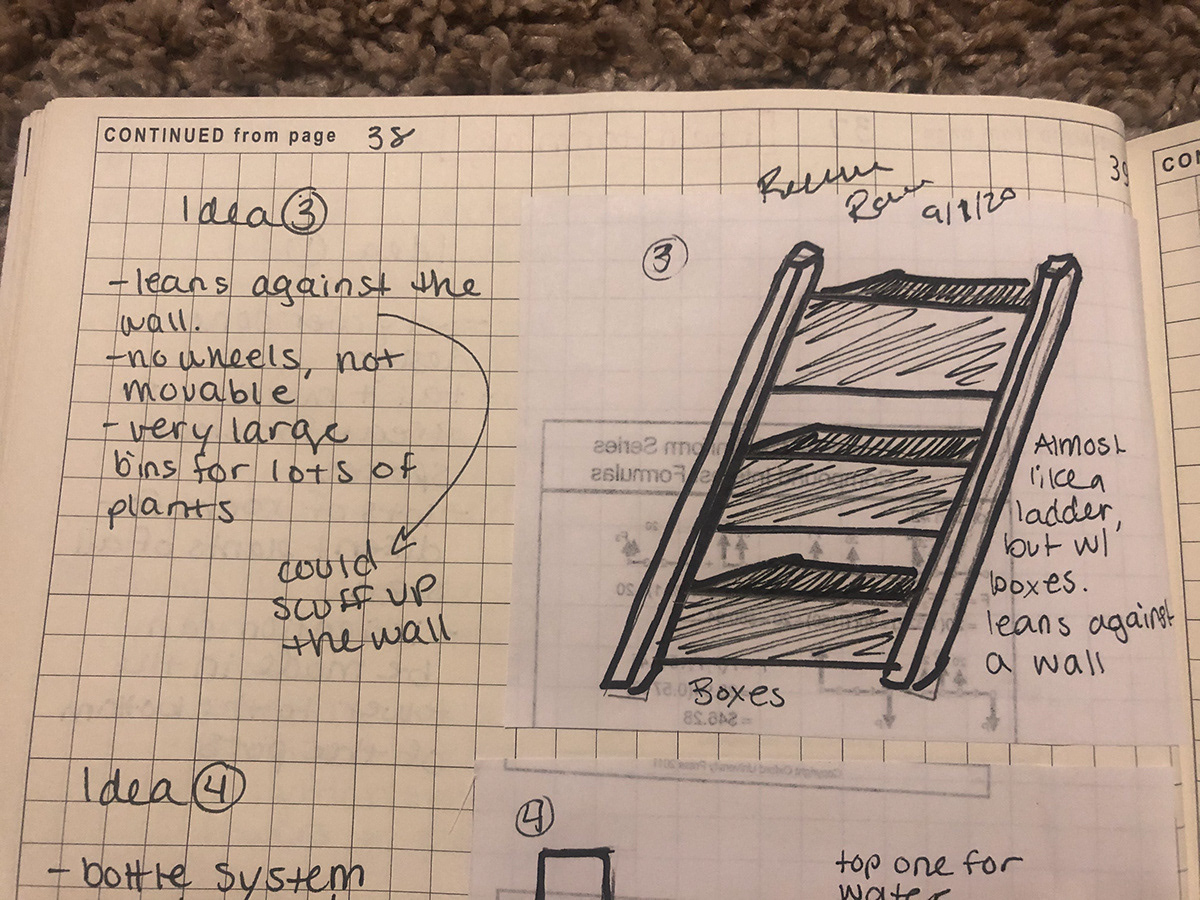 CONTINUED from page 38
39
CON
9/1/20
Idea 3
- leans against the
wall.
- no wheels, not
movable
- very large
bins for lots of
plants
could
scuff up
the wall
3
Almost
like a
ladder,
but w/
boxes.
leans against
a wall
Boxes
Idea 4
- bottle system
4
top one for
water